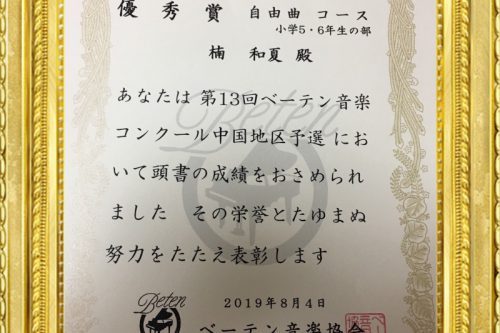 優秀賞 自由曲 コース
小学5・6年生の部
楠 和夏 殿
あなたは 第13回ベーテン音楽
コンクール中国地区予選 にお
いて頭書の成績をおさめられ
ました その栄誉とたゆまぬ
努力をたたえ表彰します
Beten
Beten
2019年8月4日
ベーテン音楽協会